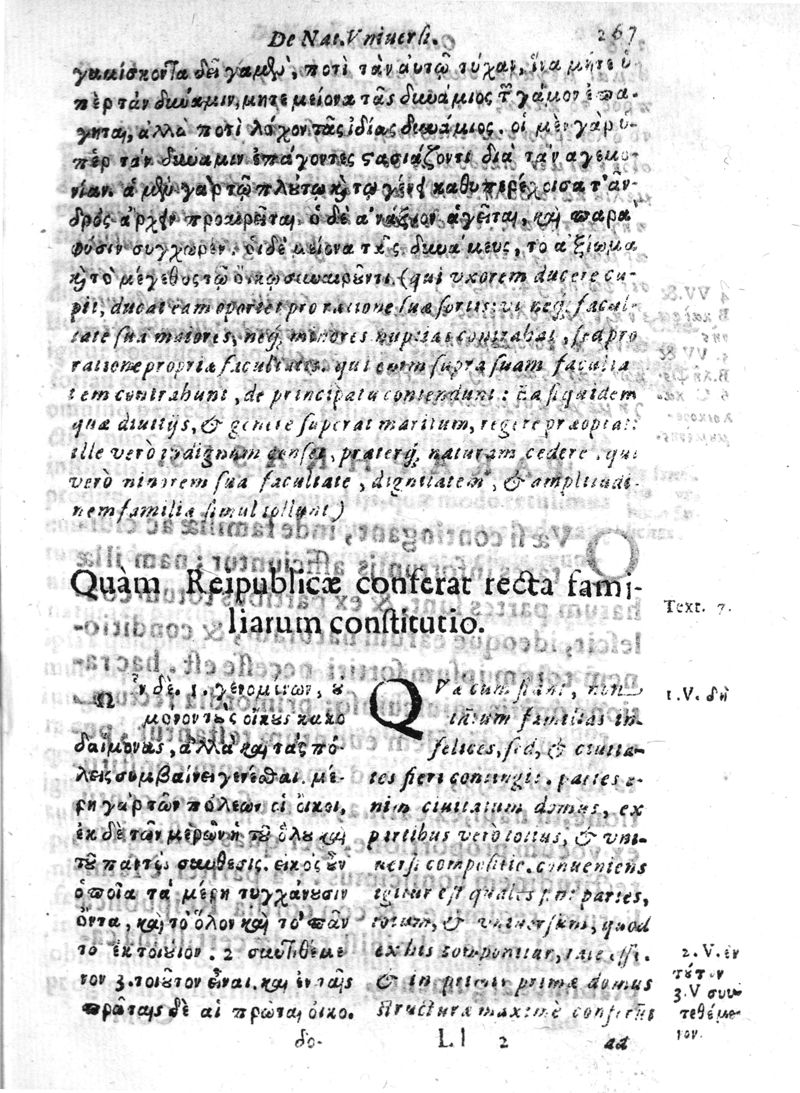 De Nat. Vniuersi. 267
γαμίσκοντα δεῖ γαμεῖν, ποτὶ τὰν αὐτῶ τύχαν, ἵνα μήτε ὑ-
πὲρ τὰν δύναμιν, μητε μείονα τᾶς δυνάμιος τ̃ γάμον ἐπά-
γηται, ἀλλα ποτὶ λόχον τᾶς ἰδίας δυνάμιος. οἱ μὲν γὰρ υ-
πὲρ τὰν δύναμιν ἐπάγοντες ςασιάζοντι διὰ τὰν ἁγεμο-
νίαν. ἁ μὲν γὰρ τῶ πλύτω κ τῶ γένει καθυπερέχοισα τ' ἀν-
δρὸς ἀρχὲν προαιρεῖται. ὁ δὲ ἀνάξιον ἁγεῖται, καὶ παρὰ
φύσιν συγχωρέν. οἱ δὲ μείονα τᾶς δυνάμεως, το ἀξίωμα
κ τὸ μέγεθος τῶ οἴκω συναιροῦντι. (qui vxorem ducere cu-
pit, ducat eam oportet pro ratione suæ sortis: vt neq; facul-
tate sua maiores, neq; minores nuptias contrahat, sed pro
ratione propriæ facultatis. qui enim supra suam faculta
tem contrahunt, de principatu contendunt: Ea siquidem
quæ diuitijs, & genere superat maritum, regere præoptat:
ille verò indignum censet, præterq; naturam cedere. qui
verò minorem sua facultate, dignitatem, & amplitudi-
nem familiæ simul tollunt)
Quàm Reipublicæ conferat recta fami-
liarum constitutio.
Text. 7.
Ὧν δὲ. 1. γενομένων, ȣ
μονον τȣς οἴκȣς κακο
δαίμονας, ἀλλὰ καὶ τὰς πό-
λεις συμβαίνει γενέσθαι. μέ-
ρη γὰρ τῶν πόλεων οἱ οἶκοι,
ἐκ δὲ τῶν μερῶν ἡ τȣ ὅλȣ καὶ
τȣ παντὸς σύνθεσις. εἰκὸς ȣν
ὁποῖα τὰ μέρη τυγχάνȣσιν
ὄντα, καὶ τὸ ὅλον καὶ τὸ πᾶν
τὸ ἐκ τοιȣ́ων. 2 συντιθέμε
νον 3. τοιοῦτον εἶναι. καὶ ἐν ταῖς
πρῶταις δὲ αἱ πρῶται οἰκο.
δο-
QVæ cum fiant, non
tantum familias in-
felices, sed, & ciuita-
tes fieri contingit. partes e-
nim ciuitatum domus, ex
partibus verò totius, & vni-
uersi compositio. conueniens
igitur est quales sint partes,
totum, & vniuersum, quod
ex his componitur, tale esse.
& in primis primæ domus
structuræ maximè confertis
1. V. δὴ
2. V. ἐν
τȣ́των
3. V συν
τεθέμε
νον.
Ll 2 ad